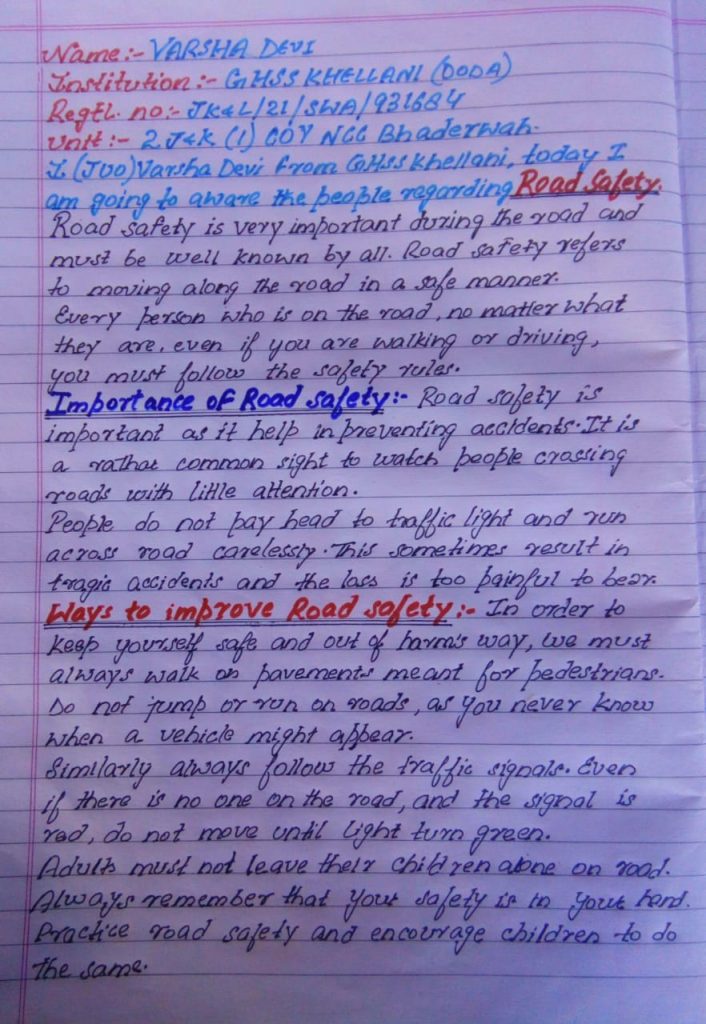 Name:- VARSHA DEVI
Institution:- GHSS KHELLANI (DODA)
Regtl. no:- JK&L/21/SWA/931684
Unit:- 2 J&K (I) COY NCC Bhaderwah.
I, (JUO) Varsha Devi from GHSS Khellani, today I
am going to aware the people regarding Road Safety.
Road safety is very important during the road and
must be well known by all. Road safety refers
to moving along the road in a safe manner.
Every person who is on the road, no matter what
they are, even if you are walking or driving,
you must follow the safety rules.
Importance of Road safety:- Road safety is
important as it help in preventing accidents. It is
a rathat common sight to watch people crossing
roads with little attention.
People do not pay head to traffic light and run
across road carelessly. This sometimes result in
tragic accidents and the loss is too painful to bear.
Ways to improve Road safety:- In order to
keep yourself safe and out of harm's way, we must
always walk on pavements meant for pedestrians.
Do not jump or run on roads, as you never know
when a vehicle might appear.
Similarly always follow the traffic signals. Even
if there is no one on the road, and the signal is
red, do not move until light turn green.
Adults must not leave their children alone on road.
Always remember that your safety is in your hand.
Practice road safety and encourage children to do
the same.